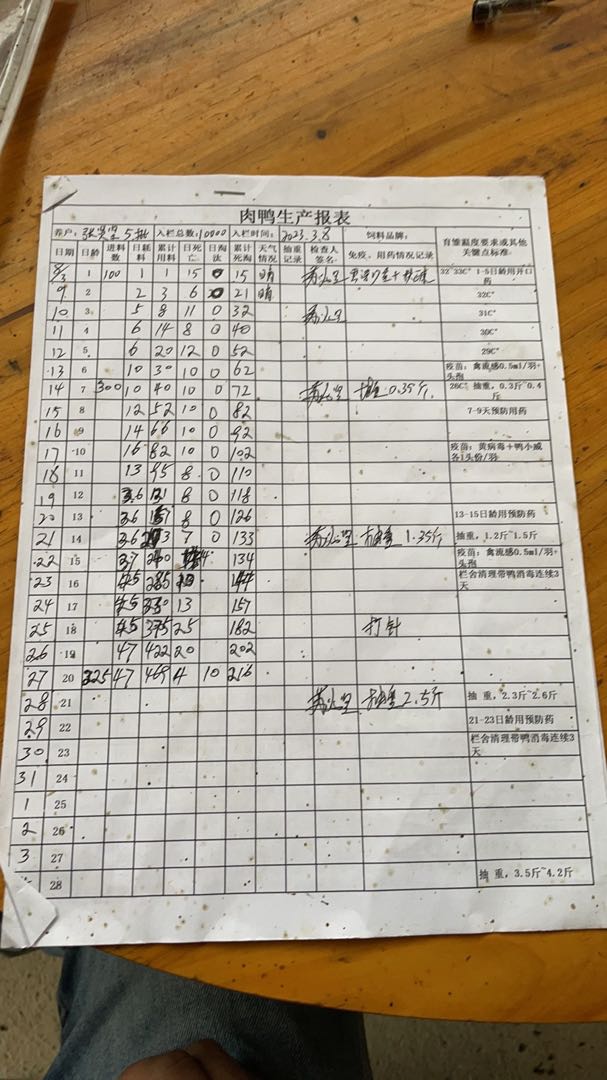 肉鸭生产报表
养户: 5批 入栏总数:10000 入栏时间: 2023.3.8 饲料品牌:
日期 日龄 进料数 日耗料 累计用料 日死亡 日淘汰 累计死淘 天气情况 抽重记录 检查人签名 免疫、用药情况记录 育雏温度要求或其他关键点标准:
8/3 1 100 1 1 15 0 15 晴 32~33C° 1-5日龄用开口药
9 2 2 3 6 0 21 晴 32C°
10 3 5 8 11 0 32 31C°
11 4 6 14 8 0 40 30C°
12 5 6 20 12 0 52 29C°
13 6 10 30 10 0 62 疫苗:禽流感0.5ml/羽+头孢
14 7 300 10 40 10 0 72 0.35斤. 28C° 抽重,0.3斤~0.4斤
15 8 12 52 10 0 82 7-9天预防用药
16 9 14 66 10 0 92
17 10 16 82 10 0 102 疫苗:黄病毒+鸭小减各1头份/羽
18 11 13 95 8 0 110
19 12 8 0 118
20 13 8 0 126 13-15日龄用预防药
21 14 7 0 133 抽重 1.35斤 抽重,1.2斤~1.5斤
22 15 134 疫苗:禽流感0.5ml/羽+
23 16 栏舍清理带鸭消毒连续3天
24 17 13 157
25 18 25 182 打针
26 19 47 422 20 202
27 20 47 469 4 10 216
28 21 抽重 2.5斤 抽 重,2.3斤~2.6斤
29 22 21-23日龄用预防药
30 23 栏舍清理带鸭消毒连续3天
31 24
1 25
2 26
3 27
28 抽 重,3.5斤~4.2斤